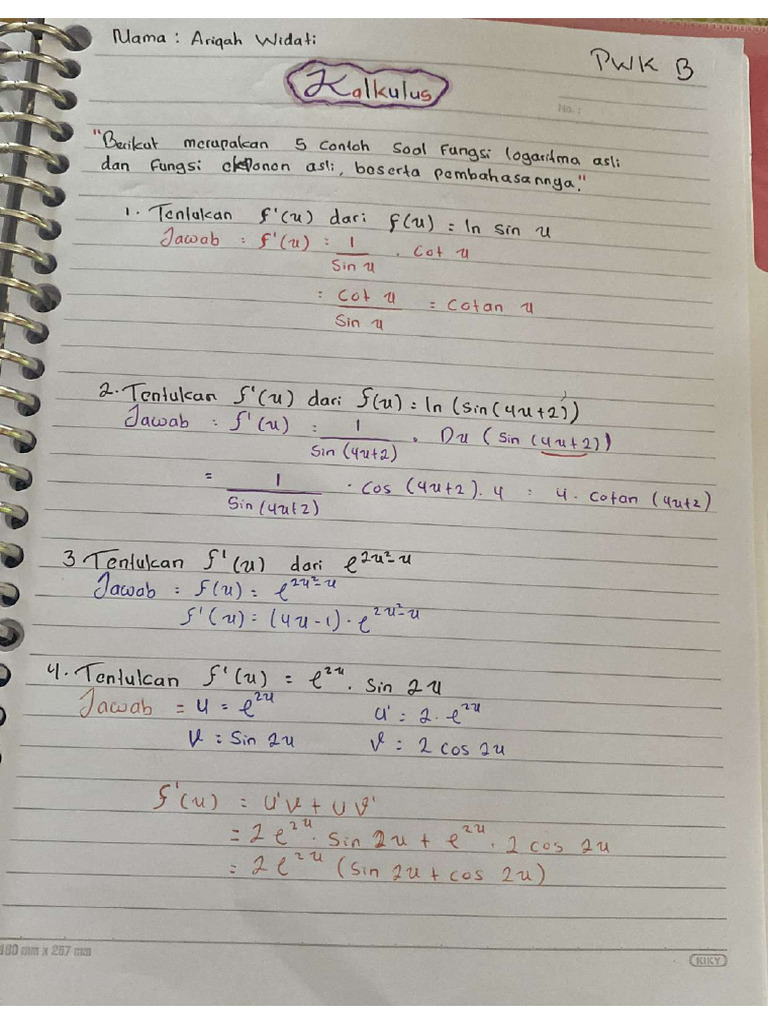 Nama : Ariqah Widati
PWK B
Kalkulus
No. :
"Berikut merupakan 5 contoh soal fungsi logaritma asli
dan fungsi eksponen asli, beserta pembahasannya."
1. Tentukan f'(u) dari f(u) = ln sin u
Jawab : f'(u) : 1/Sin u . Cot u
: Cot u/Sin u = Cotan u
2. Tentukan f'(u) dari f(u) = ln (sin(4u+2))
Jawab : f'(u) : 1/Sin (4u+2) . Du (Sin (4u+2))
= 1/Sin (4u+2) . Cos (4u+2). 4 = 4. Cotan (4u+2)
3 Tentukan f'(u) dari e^2u²-u
Jawab : f(u) = e^2u²-u
f'(u) = (4u-1) . e^2u²-u
4. Tentukan f'(u) = e^2u . Sin 2u
Jawab = u = e^2u u' = 2. e^2u
v = Sin 2u v' = 2 cos 2u
f'(u) = u'v + u v'
= 2 e^2u . Sin 2u + e^2u . 2 cos 2u
= 2e^2u (Sin 2u + cos 2u)
180 mm x 257 mm
KIKY